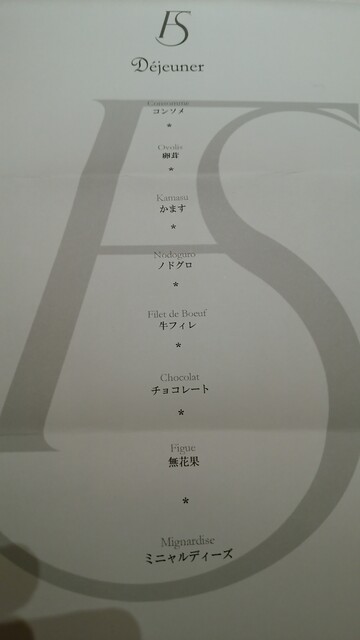 FS
Déjeuner
Consommé
コンソメ
*
Ovolis
卵茸
*
Kamasu
かます
*
Nodoguro
ノドグロ
*
Filet de Boeuf
牛フィレ
*
Chocolat
チョコレート
*
Figue
無花果
*
Mignardise
ミニャルディーズ